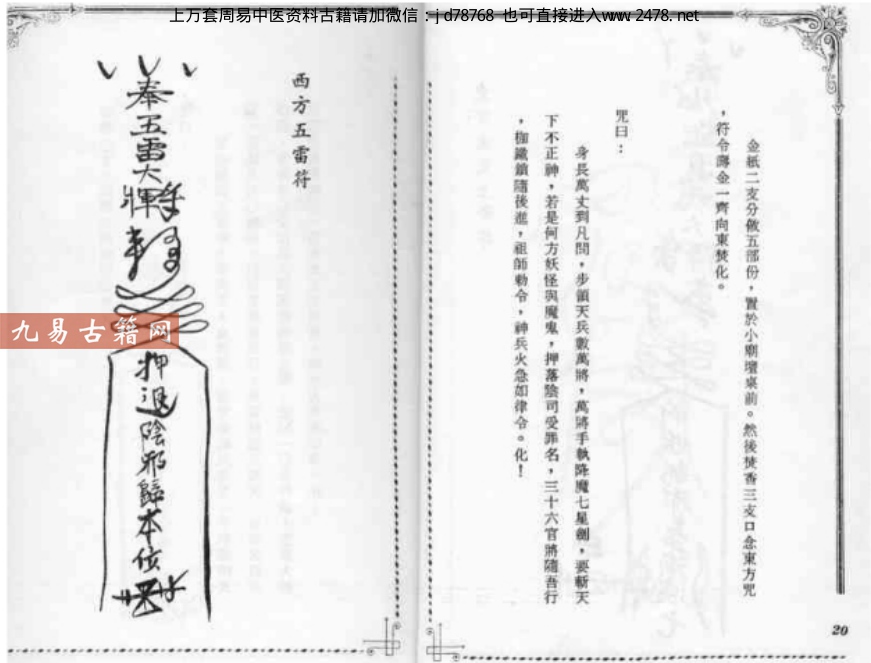 上万套周易中医资料古籍请加微信：jd78768 也可直接进入www.2478.net
金紙二支分做五部份，置於小廟壇桌前。然後焚香三支口念東方咒
，符令壽金一齊向東焚化。
咒曰：
身長萬丈到凡間，步領天兵數萬將，萬將手執降魔七星劍，要斬天
下不正神，若是何方妖怪與魔鬼，押落陰司受罪名，三十六官將隨吾行
，枷鐵鎖隨後進，祖師勅令，神兵火急如律令。化！
20
西方五雷符
奉五雷大將軍
押退陰邪歸本位
九易古籍网